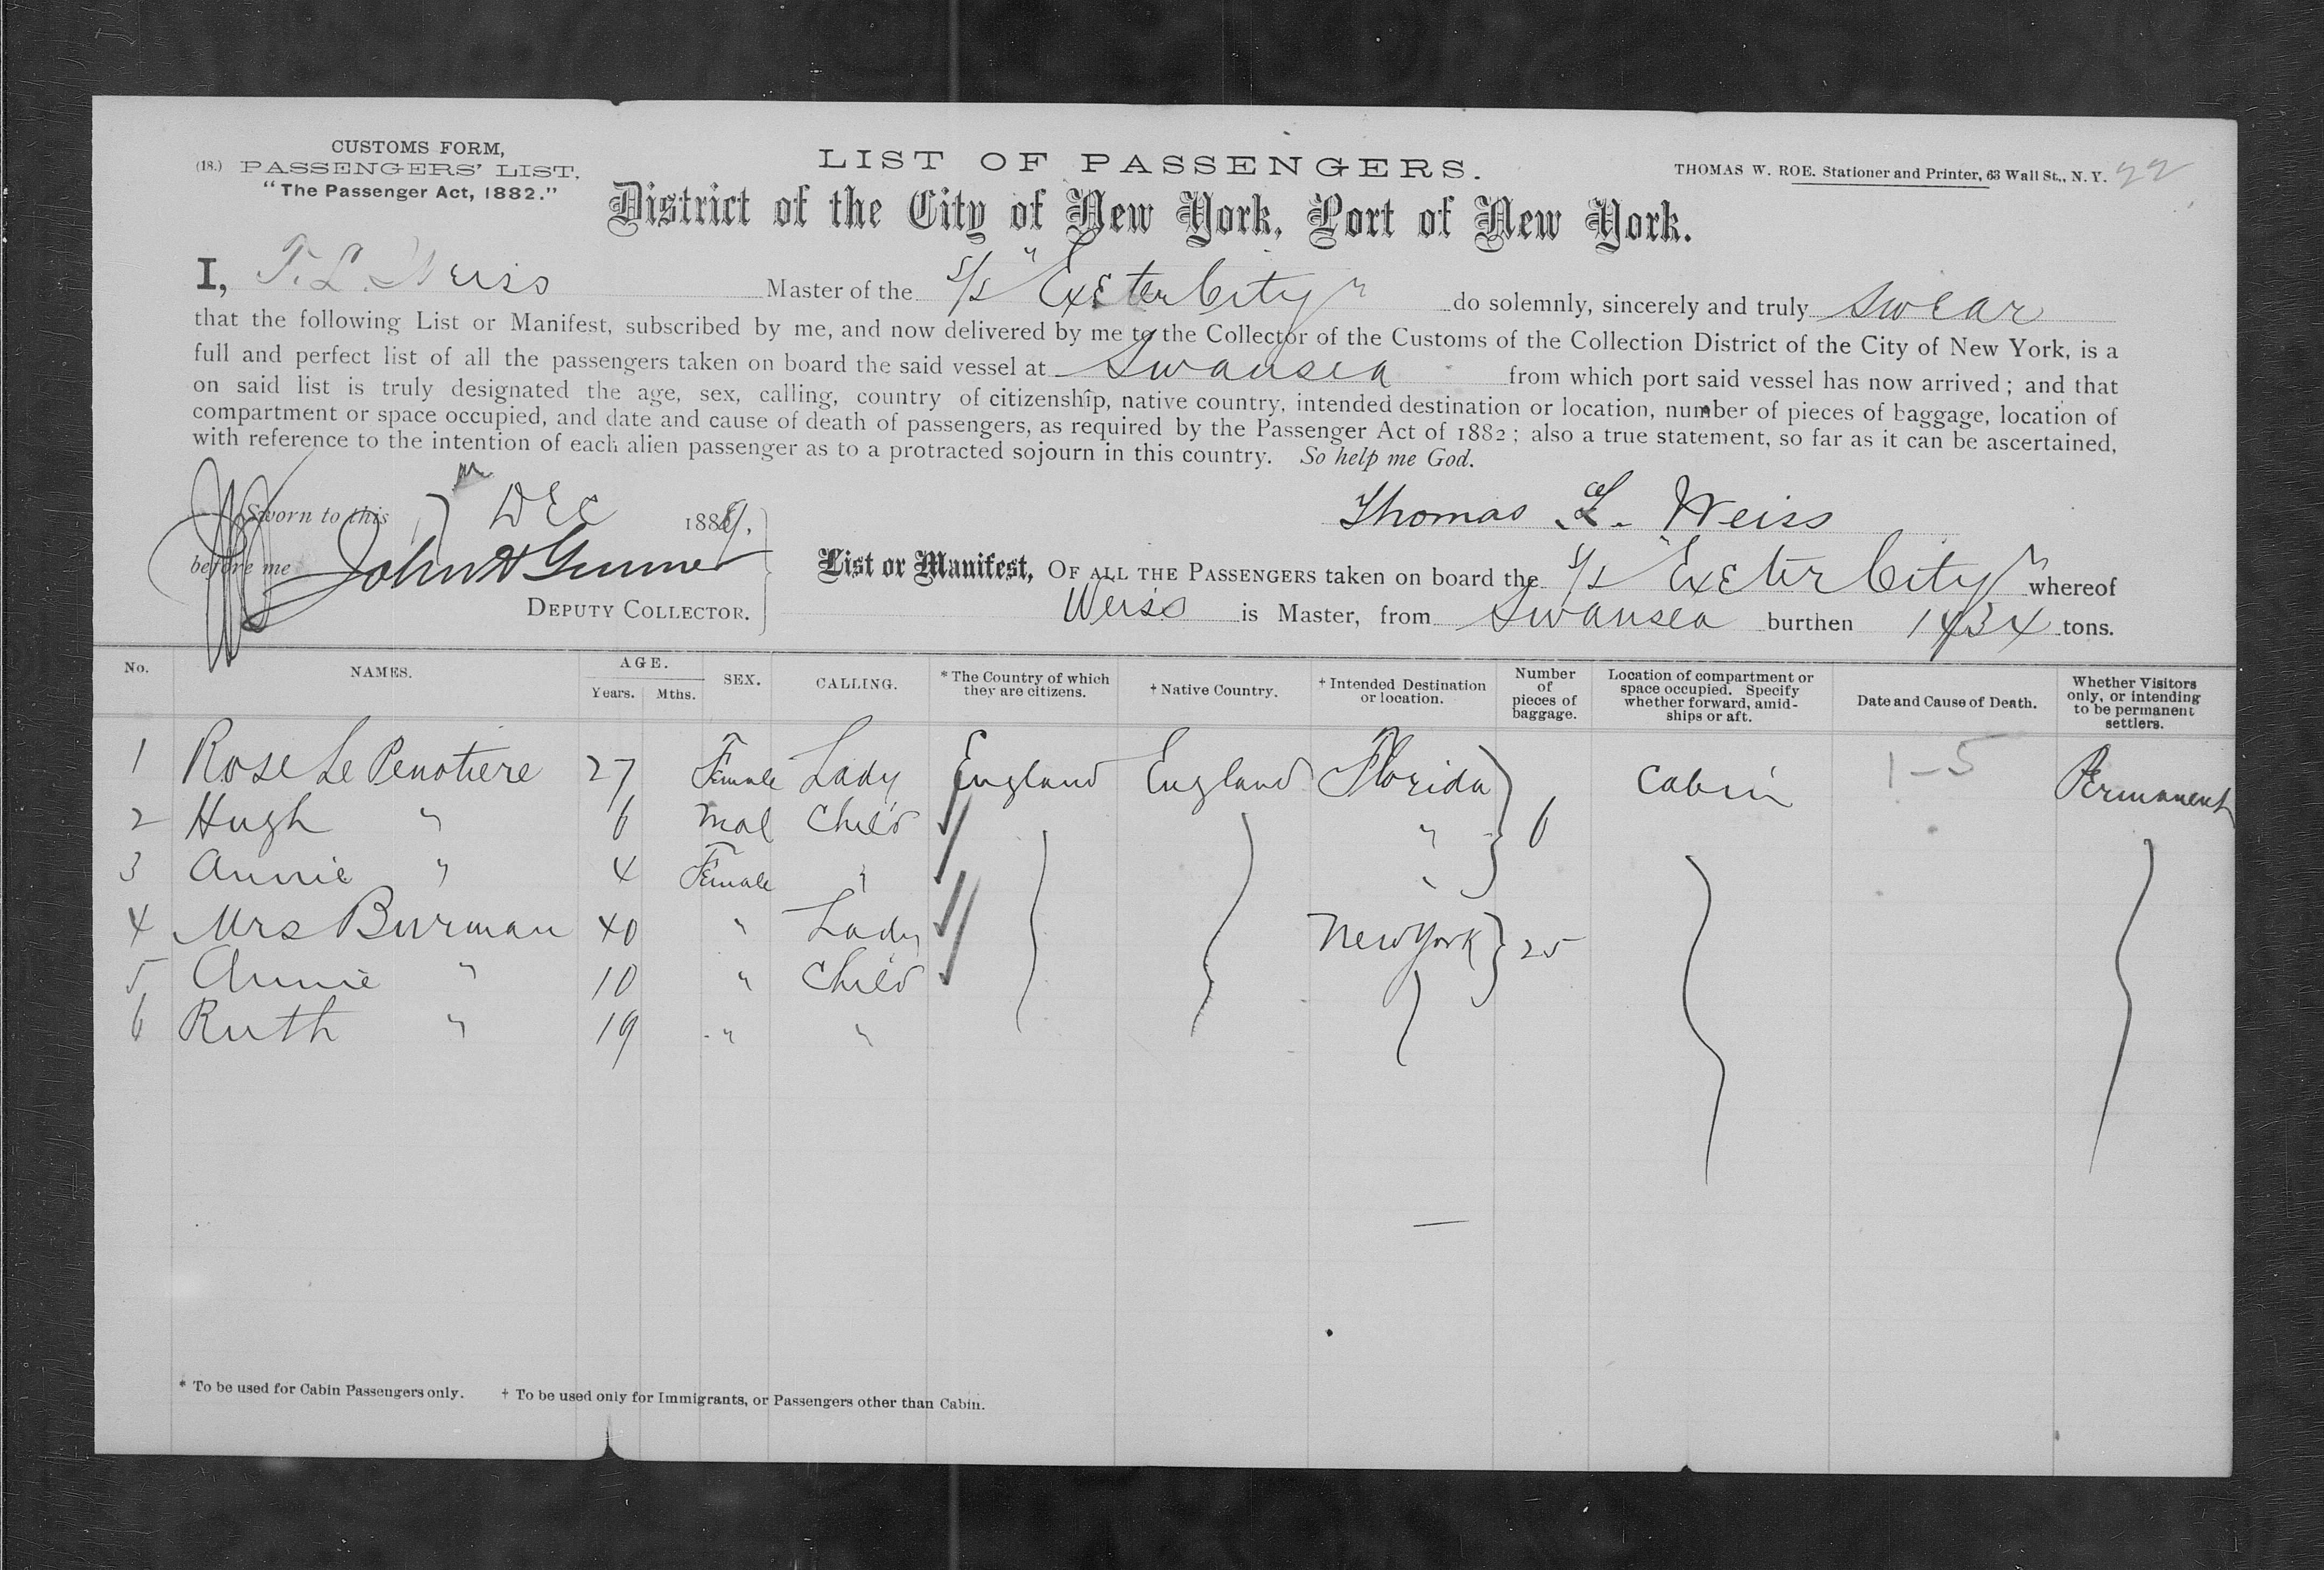 CUSTOMS FORM,
(18.) PASSENGERS' LIST.
"The Passenger Act, 1882."
LIST OF PASSENGERS.
THOMAS W. ROE. Stationer and Printer, 63 Wall St., N. Y. 22
District of the City of New York, Port of New York.
I, T. L. Weiss Master of the S/S "Exeter City" do solemnly, sincerely and truly swear
that the following List or Manifest, subscribed by me, and now delivered by me to the Collector of the Customs of the Collection District of the City of New York, is a
full and perfect list of all the passengers taken on board the said vessel at Swansea from which port said vessel has now arrived; and that
on said list is truly designated the age, sex, calling, country of citizenship, native country, intended destination or location, number of pieces of baggage, location of
compartment or space occupied, and date and cause of death of passengers, as required by the Passenger Act of 1882; also a true statement, so far as it can be ascertained,
with reference to the intention of each alien passenger as to a protracted sojourn in this country. So help me God.
Sworn to this Dec 1889.
Thomas L. Weiss
before me
DEPUTY COLLECTOR.
List or Manifest, OF ALL THE PASSENGERS taken on board the S/S "Exeter City" whereof
Weiss is Master, from Swansea burthen 1434 tons.
No. NAMES. AGE. Years. Mths. SEX. CALLING. * The Country of which they are citizens. † Native Country. † Intended Destination or location. Number of pieces of baggage. Location of compartment or space occupied. Specify whether forward, amidships or aft. Date and Cause of Death. Whether Visitors only, or intending to be permanent settlers.
1 Rose Le Penotiere 27 Female Lady England England Florida 6 Cabin 1-5 Permanent
2 Hugh " 6 Mal Child "
3 Annie " 4 Female " "
4 Mrs Burman 40 " Lady New York 25
5 Annie " 10 " Child
6 Ruth " 19 " "
* To be used for Cabin Passengers only. † To be used only for Immigrants, or Passengers other than Cabin.